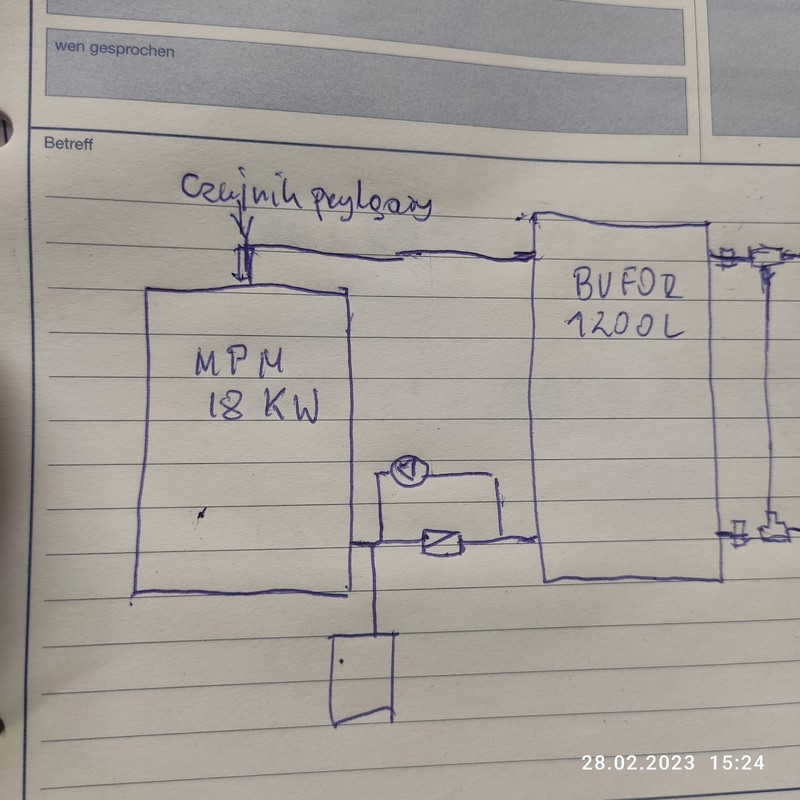 wen gesprochen
Betreff
Czujnik przylgowy
BUFOR
1200L
MPM
18 KW
28.02.2023 15:24